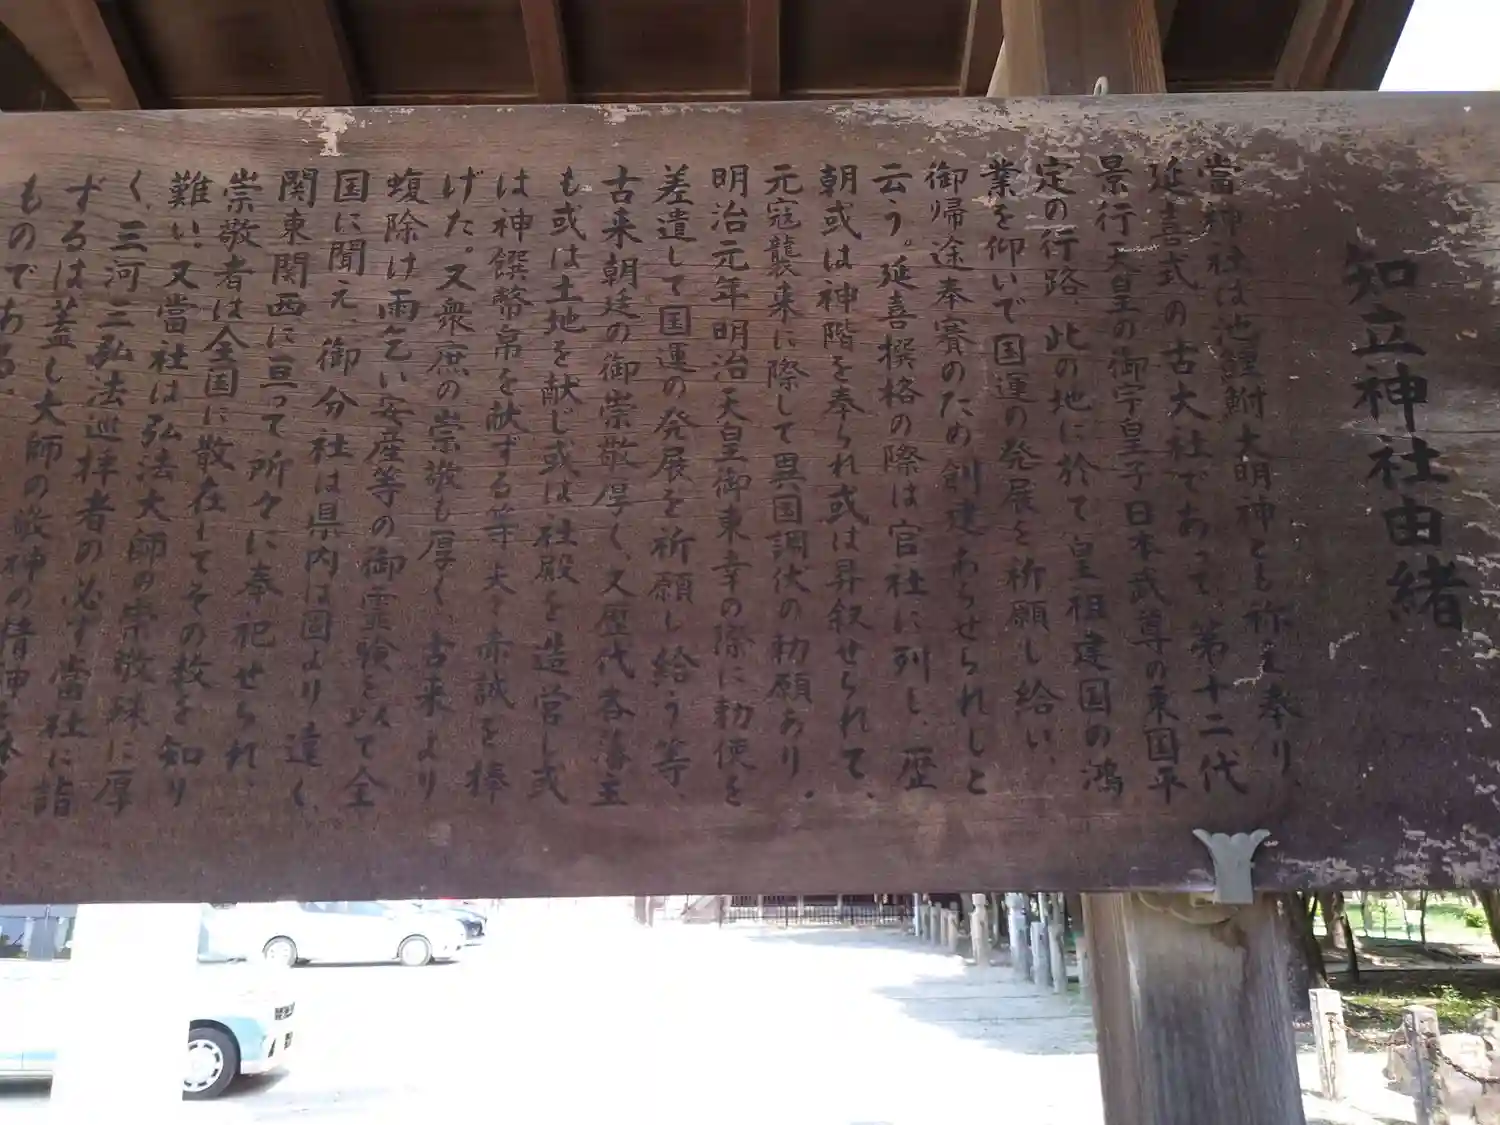 知立神社由緒
當神社は池鯉鮒大明神とも称え奉り、
延喜式の古大社であって、第十二代
景行天皇の御宇皇子日本武尊の東国平
定の行路、此の地に於て皇祖建国の鴻
業を仰いで国運の発展を祈願し給い、
御帰途奉賽のため創建あらせられしと
云う。延喜撰格の際は官社に列し、歴
朝或は神階を奉られ或は昇叙せられて、
元寇襲来に際して異国調伏の勅願あり、
明治元年明治天皇御東幸の際に勅使を
差遣して国運の発展を祈願し給う等、
古来朝廷の御崇敬厚く、又歴代各藩主
も或は土地を献じ或は社殿を造営し或
は神饌幣帛を献ずる等夫々赤誠を捧
げた。又衆庶の崇敬も厚く、古来より
蝮除け雨乞い安産等の御霊験を以て全
国に聞え、御分社は県内は固より遠く
関東関西に亘って所々に奉祀せられ、
崇敬者は全国に散在してその数を知り
難い。又當社は弘法大師の崇敬殊に厚
く、三河三弘法巡拝者の必ず當社に詣
ずるは蓋し大師の敬神の精神を体
ものである。